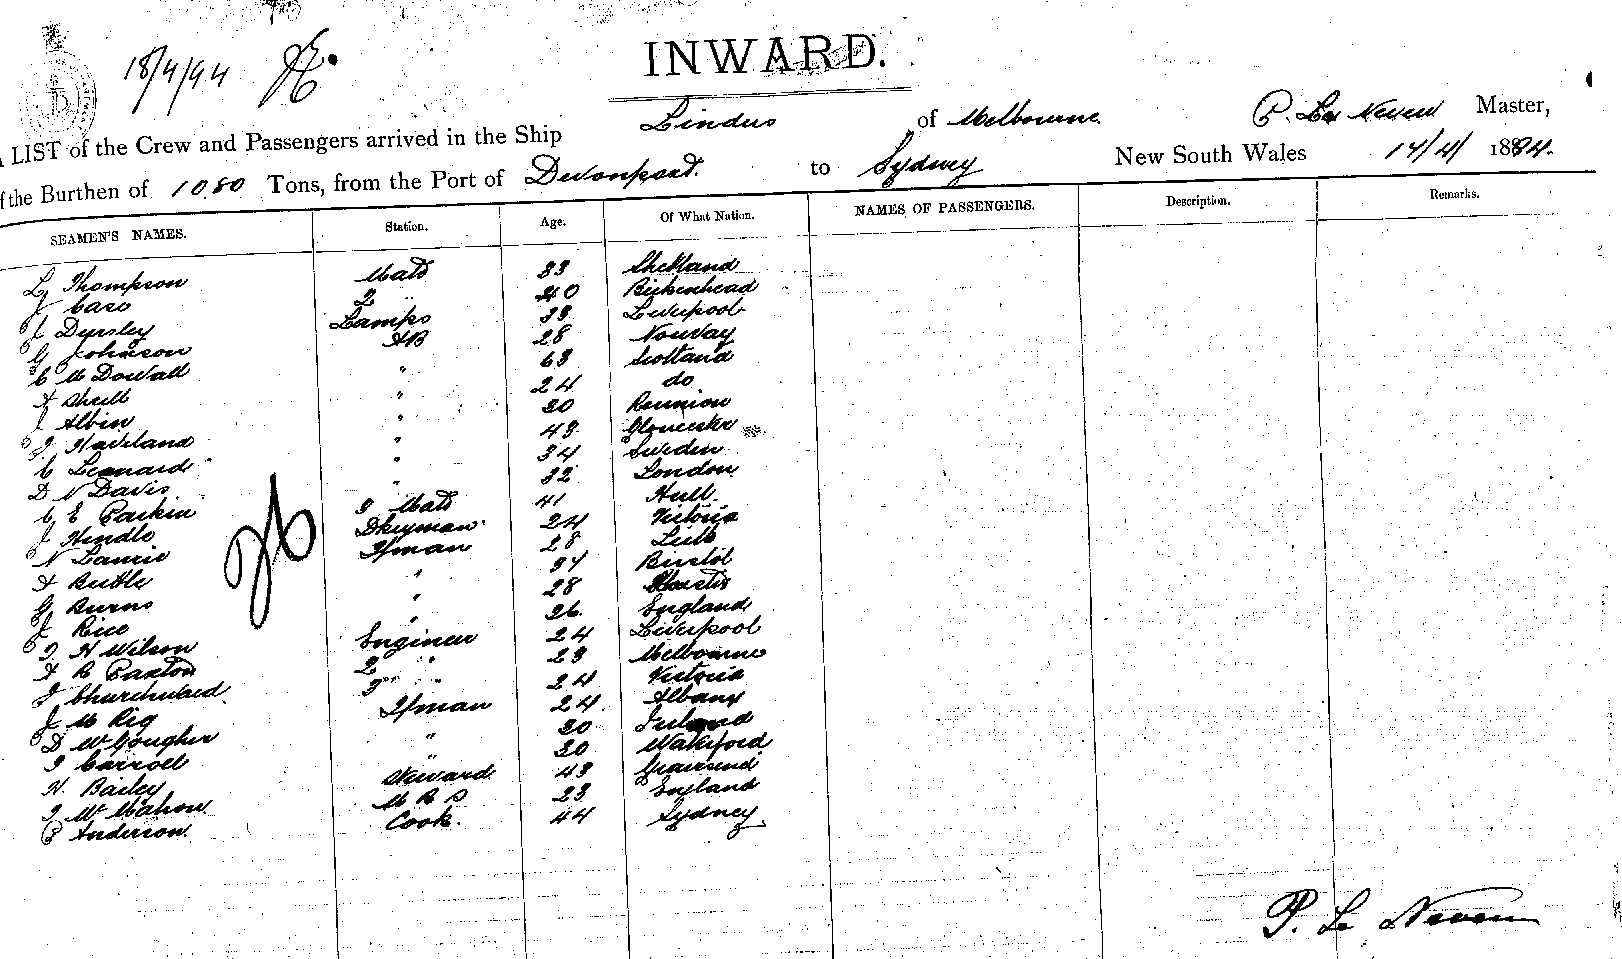 18/4/94
INWARD.
A LIST of the Crew and Passengers arrived in the Ship Lindus of Melbourne P. Le Neven Master,
of the Burthen of 1080 Tons, from the Port of Devonport. to Sydney New South Wales 14/4/ 1894.
SEAMEN'S NAMES. Station. Age. Of What Nation. NAMES OF PASSENGERS. Description. Remarks.
L Thompson Mate 33 Shetland
J Case 2 " 40 Birkenhead
J Dursley Lamps 33 Liverpool
G Johnson AB 28 Norway
C McDowall " 63 Scotland
A Shell " 24 do
J Albin " 30 Reunion
J Haviland " 43 Gloucester
C Leonard " 34 Sweden
D N Davis " 32 London
C E Parkin 3 Mate 41 Hull
J Hindle Dkeyman 24 Victoria
N Laurie Fman 28 Leith
A Buttle " 34 Bristol
G Burns " 28
J Rice " 26 England
J H Wilson Engineer 24 Liverpool
A R Paxton 2 " 23 Melbourne
J Churchward 3 " 24 Victoria
J McRig Fman 24 Albany
D McGougher " 30 Ireland
J Carroll " 30 Waterford
H. Bailey Steward 43 Gravesend
J McMahon M R S 23 England
P Anderson Cook. 44 Sydney
P. Le Neven